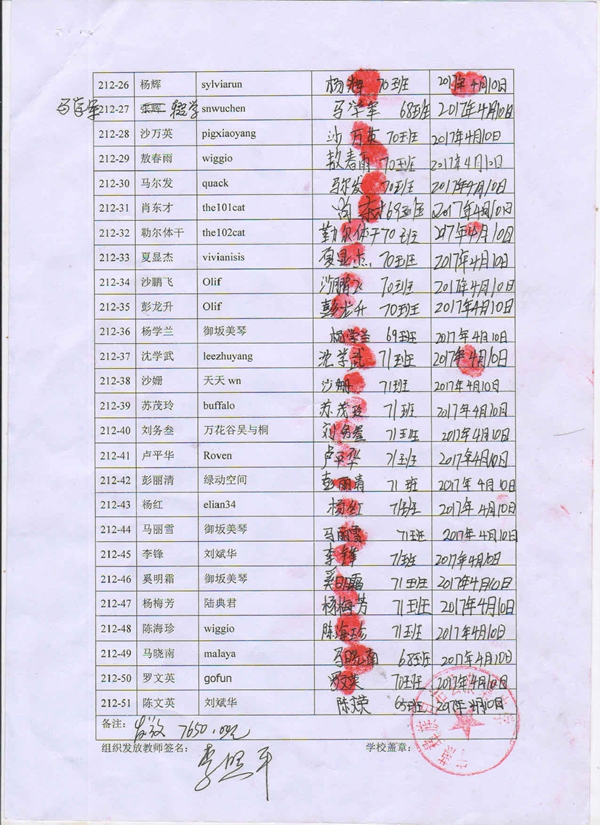 212-26 杨辉 sylviarun 杨辉 70班 2017年4月10日
马学军 212-27 张辉 snwuchen 马学军 68班 2017年4月10日
212-28 沙万英 pigxiaoyang 沙万英 70班 2017年4月10日
212-29 敖春雨 wiggio 敖春雨 70班 2017年4月10日
212-30 马尔发 quack 马尔发 70班 2017年4月10日
212-31 肖东才 the101cat 肖东才 69班 2017年4月10日
212-32 勒尔体干 the102cat 勒尔体干 70班 2017年4月10日
212-33 夏显杰 vivianisis 夏显杰 70班 2017年4月10日
212-34 沙鹏飞 Olif 沙鹏飞 70班 2017年4月10日
212-35 彭龙升 Olif 彭龙升 70班 2017年4月10日
212-36 杨学兰 御坂美琴 杨学兰 69班 2017年4月10日
212-37 沈学武 leezhuyang 沈学武 71班 2017年4月10日
212-38 沙姗 天天 wn 沙姗 71班 2017年4月10日
212-39 苏茂玲 buffalo 苏茂玲 71班 2017年4月10日
212-40 刘务叁 万花谷吴与桐 刘务叁 71班 2017年4月10日
212-41 卢平华 Roven 卢平华 71班 2017年4月10日
212-42 彭丽清 绿动空间 彭丽清 71班 2017年4月10日
212-43 杨红 elian34 杨红 71班 2017年4月10日
212-44 马丽雪 御坂美琴 马丽雪 71班 2017年4月10日
212-45 李锋 刘斌华 李锋 71班 2017年4月10日
212-46 奚明霜 御坂美琴 奚明霜 71班 2017年4月10日
212-47 杨梅芳 陆典君 杨梅芳 71班 2017年4月10日
212-48 陈海珍 wiggio 陈海珍 71班 2017年4月10日
212-49 马晓南 malaya 马晓南 68班 2017年4月10日
212-50 罗文英 gofun 罗文英 70班 2017年4月10日
212-51 陈文英 刘斌华 陈文英 65班 2017年4月10日
备注： 实发 7650.00元
组织发放教师签名： 李照平 学校盖章：